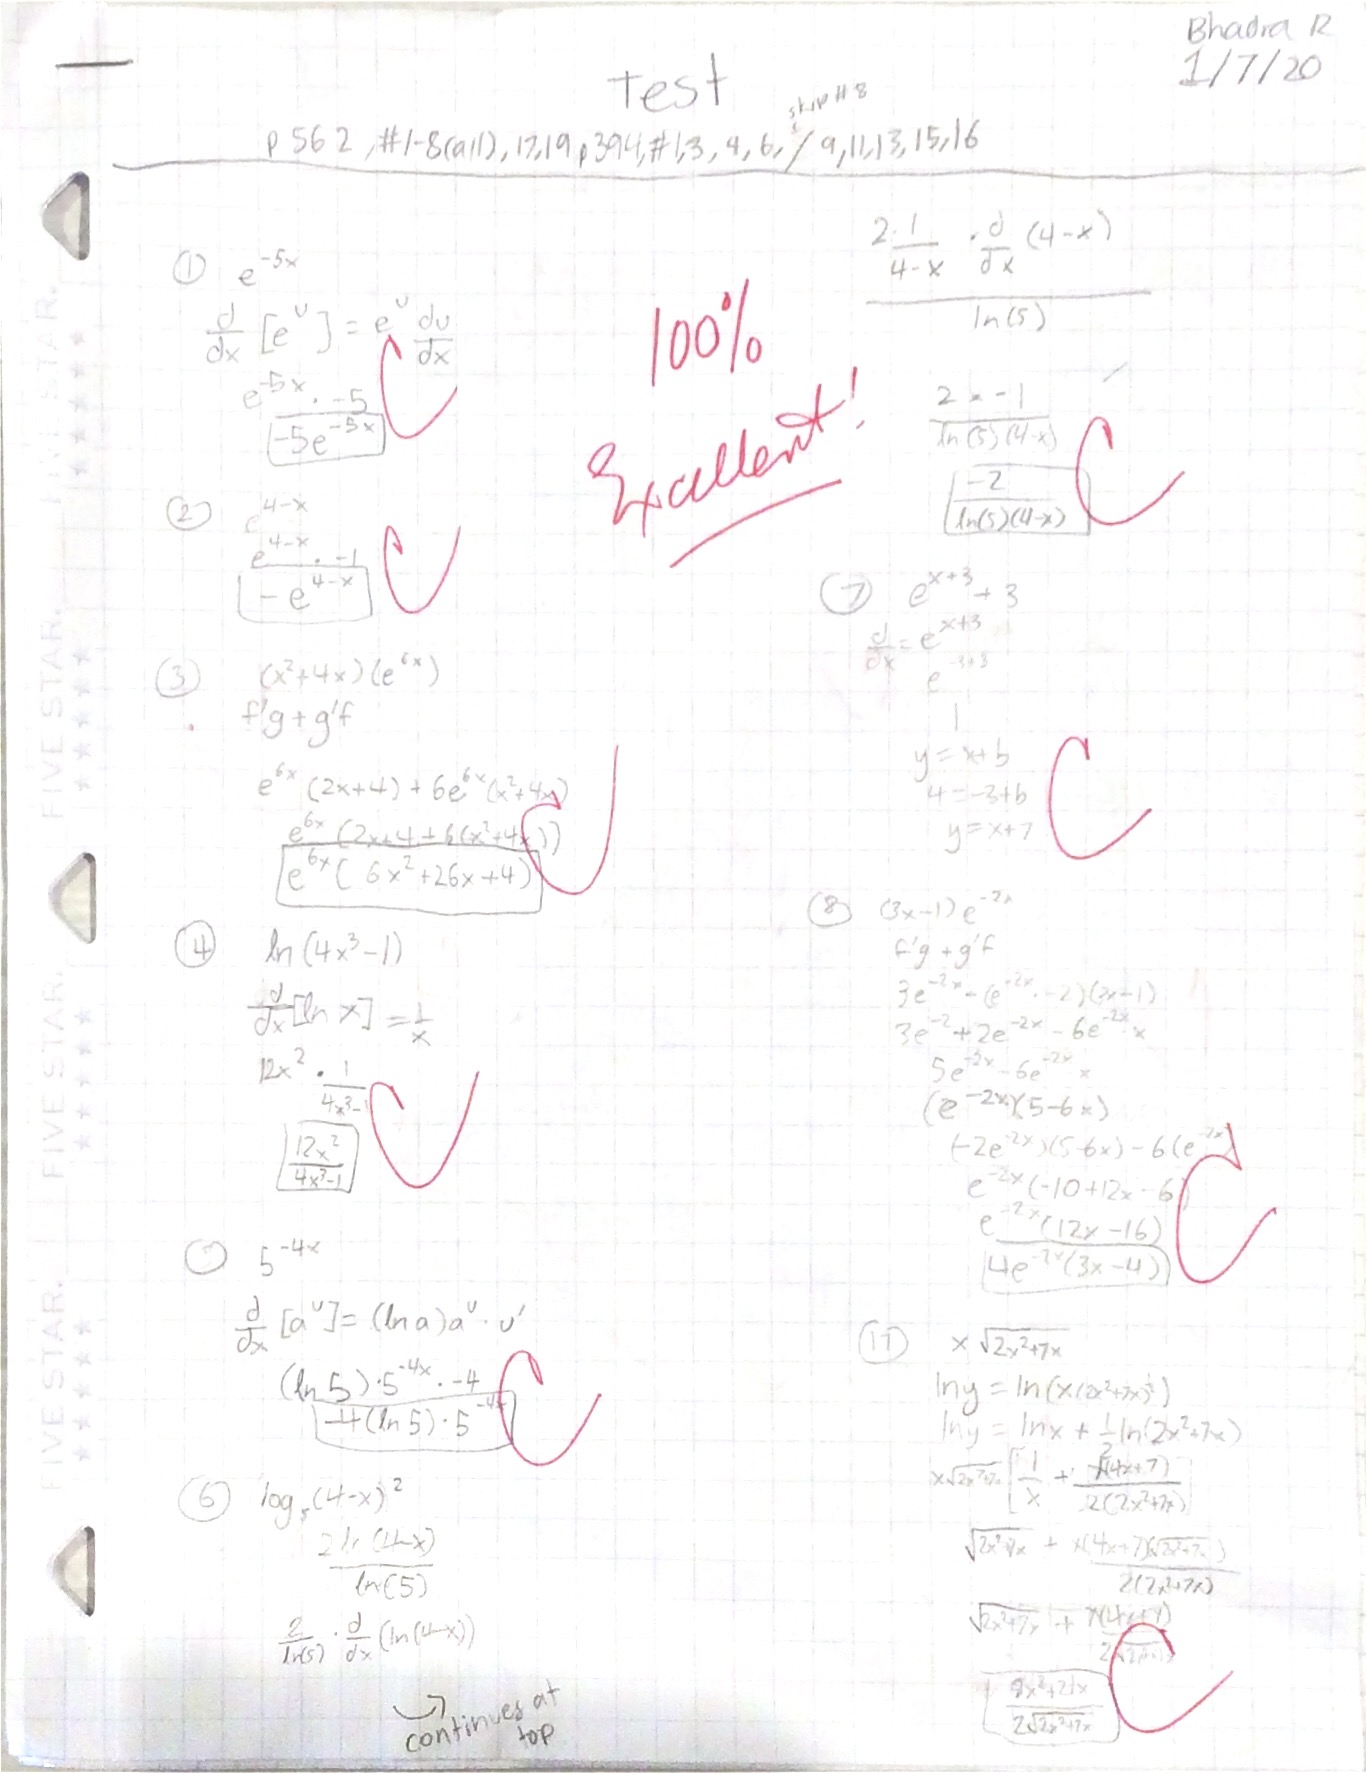 Bhadra R
1/7/20
Test
skip #8
p 562, #1-8(all), 17,19 p394,#1,3, 4, 6, / 9,11,13,15,16
① e^-5x
d/dx [e^u] = e^u du/dx
e^-5x · -5
-5e^-5x
② e^4-x
e^4-x · -1
-e^4-x
③ (x²+4x)(e^6x)
f'g + g'f
e^6x (2x+4) + 6e^6x (x²+4x)
e^6x (2x+4+6(x²+4x))
e^6x (6x²+26x+4)
④ ln (4x³-1)
d/dx [ln x] = 1/x
12x² · 1/4x³-1
12x²/4x³-1
5^-4x
d/dx [a^u] = (ln a) a^u · u'
(ln 5) · 5^-4x · -4
-4(ln 5) · 5^-4x
⑥ log₅(4-x)²
2 ln (4-x)/ln(5)
2/ln(5) · d/dx (ln(4-x))
continues at
top
100%
Excellent!
2·1/4-x · d/dx (4-x)
ln(5)
2 · -1
ln(5)(4-x)
-2
ln(5)(4-x)
⑦ e^x+3 + 3
d/dx = e^x+3
e^-3+3
1
y = x+b
4 = -3+b
y = x+7
⑧ (3x-1)e^-2x
f'g + g'f
3e^-2x - (e^-2x · -2)(3x-1)
3e^-2 + 2e^-2x - 6e^-2x · x
5e^-2x - 6e^-2x · x
(e^-2x)(5-6x)
(-2e^-2x)(5-6x) - 6(e^-2x)
e^-2x (-10+12x-6)
e^-2x (12x-16)
4e^-2x (3x-4)
⑰ x √2x²+7x
ln y = ln(x(2x²+7x)^½)
ln y = ln x + 1/2 ln(2x²+7x)
x√2x²+7x [1/x + (4x+7)/2(2x²+7x)]
√2x²+7x + x(4x+7)(√2x²+7x)/2(2x²+7x)
√2x²+7x + x(4x+7)/2√2x²+7x
8x²+21x
2√2x²+7x
FIVE STAR.
FIVE STAR.
FIVE STAR.
FIVE STAR.